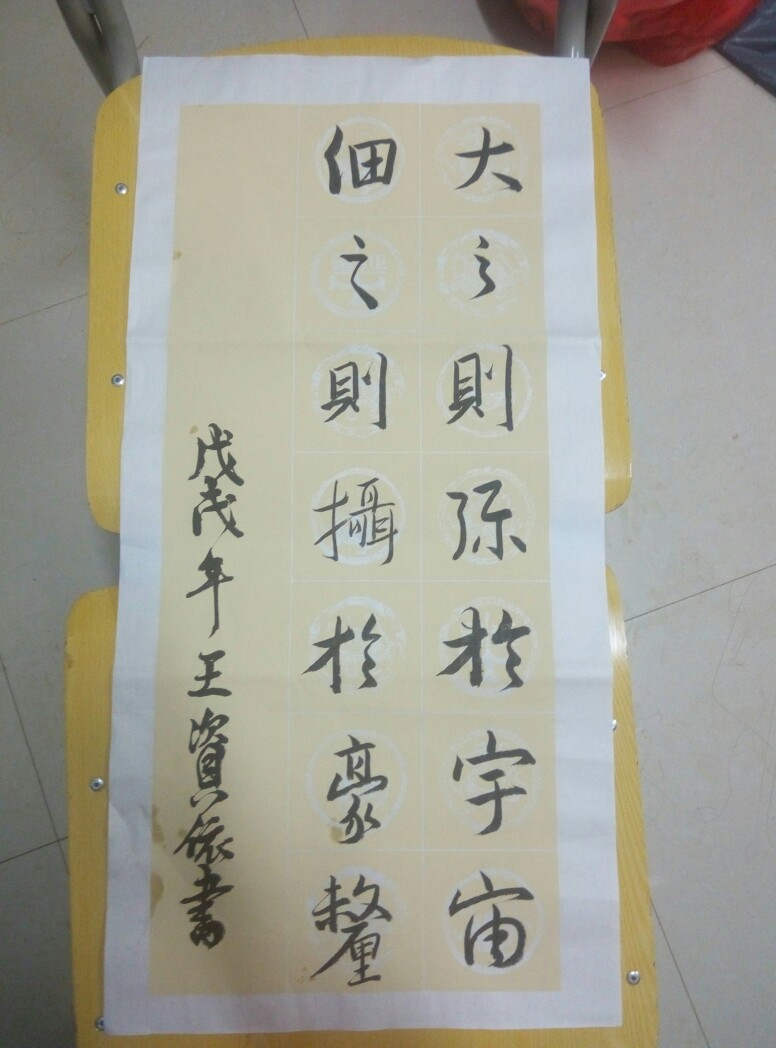 大之則弥於宇宙
細之則攝於豪釐
戊戌年王資依書